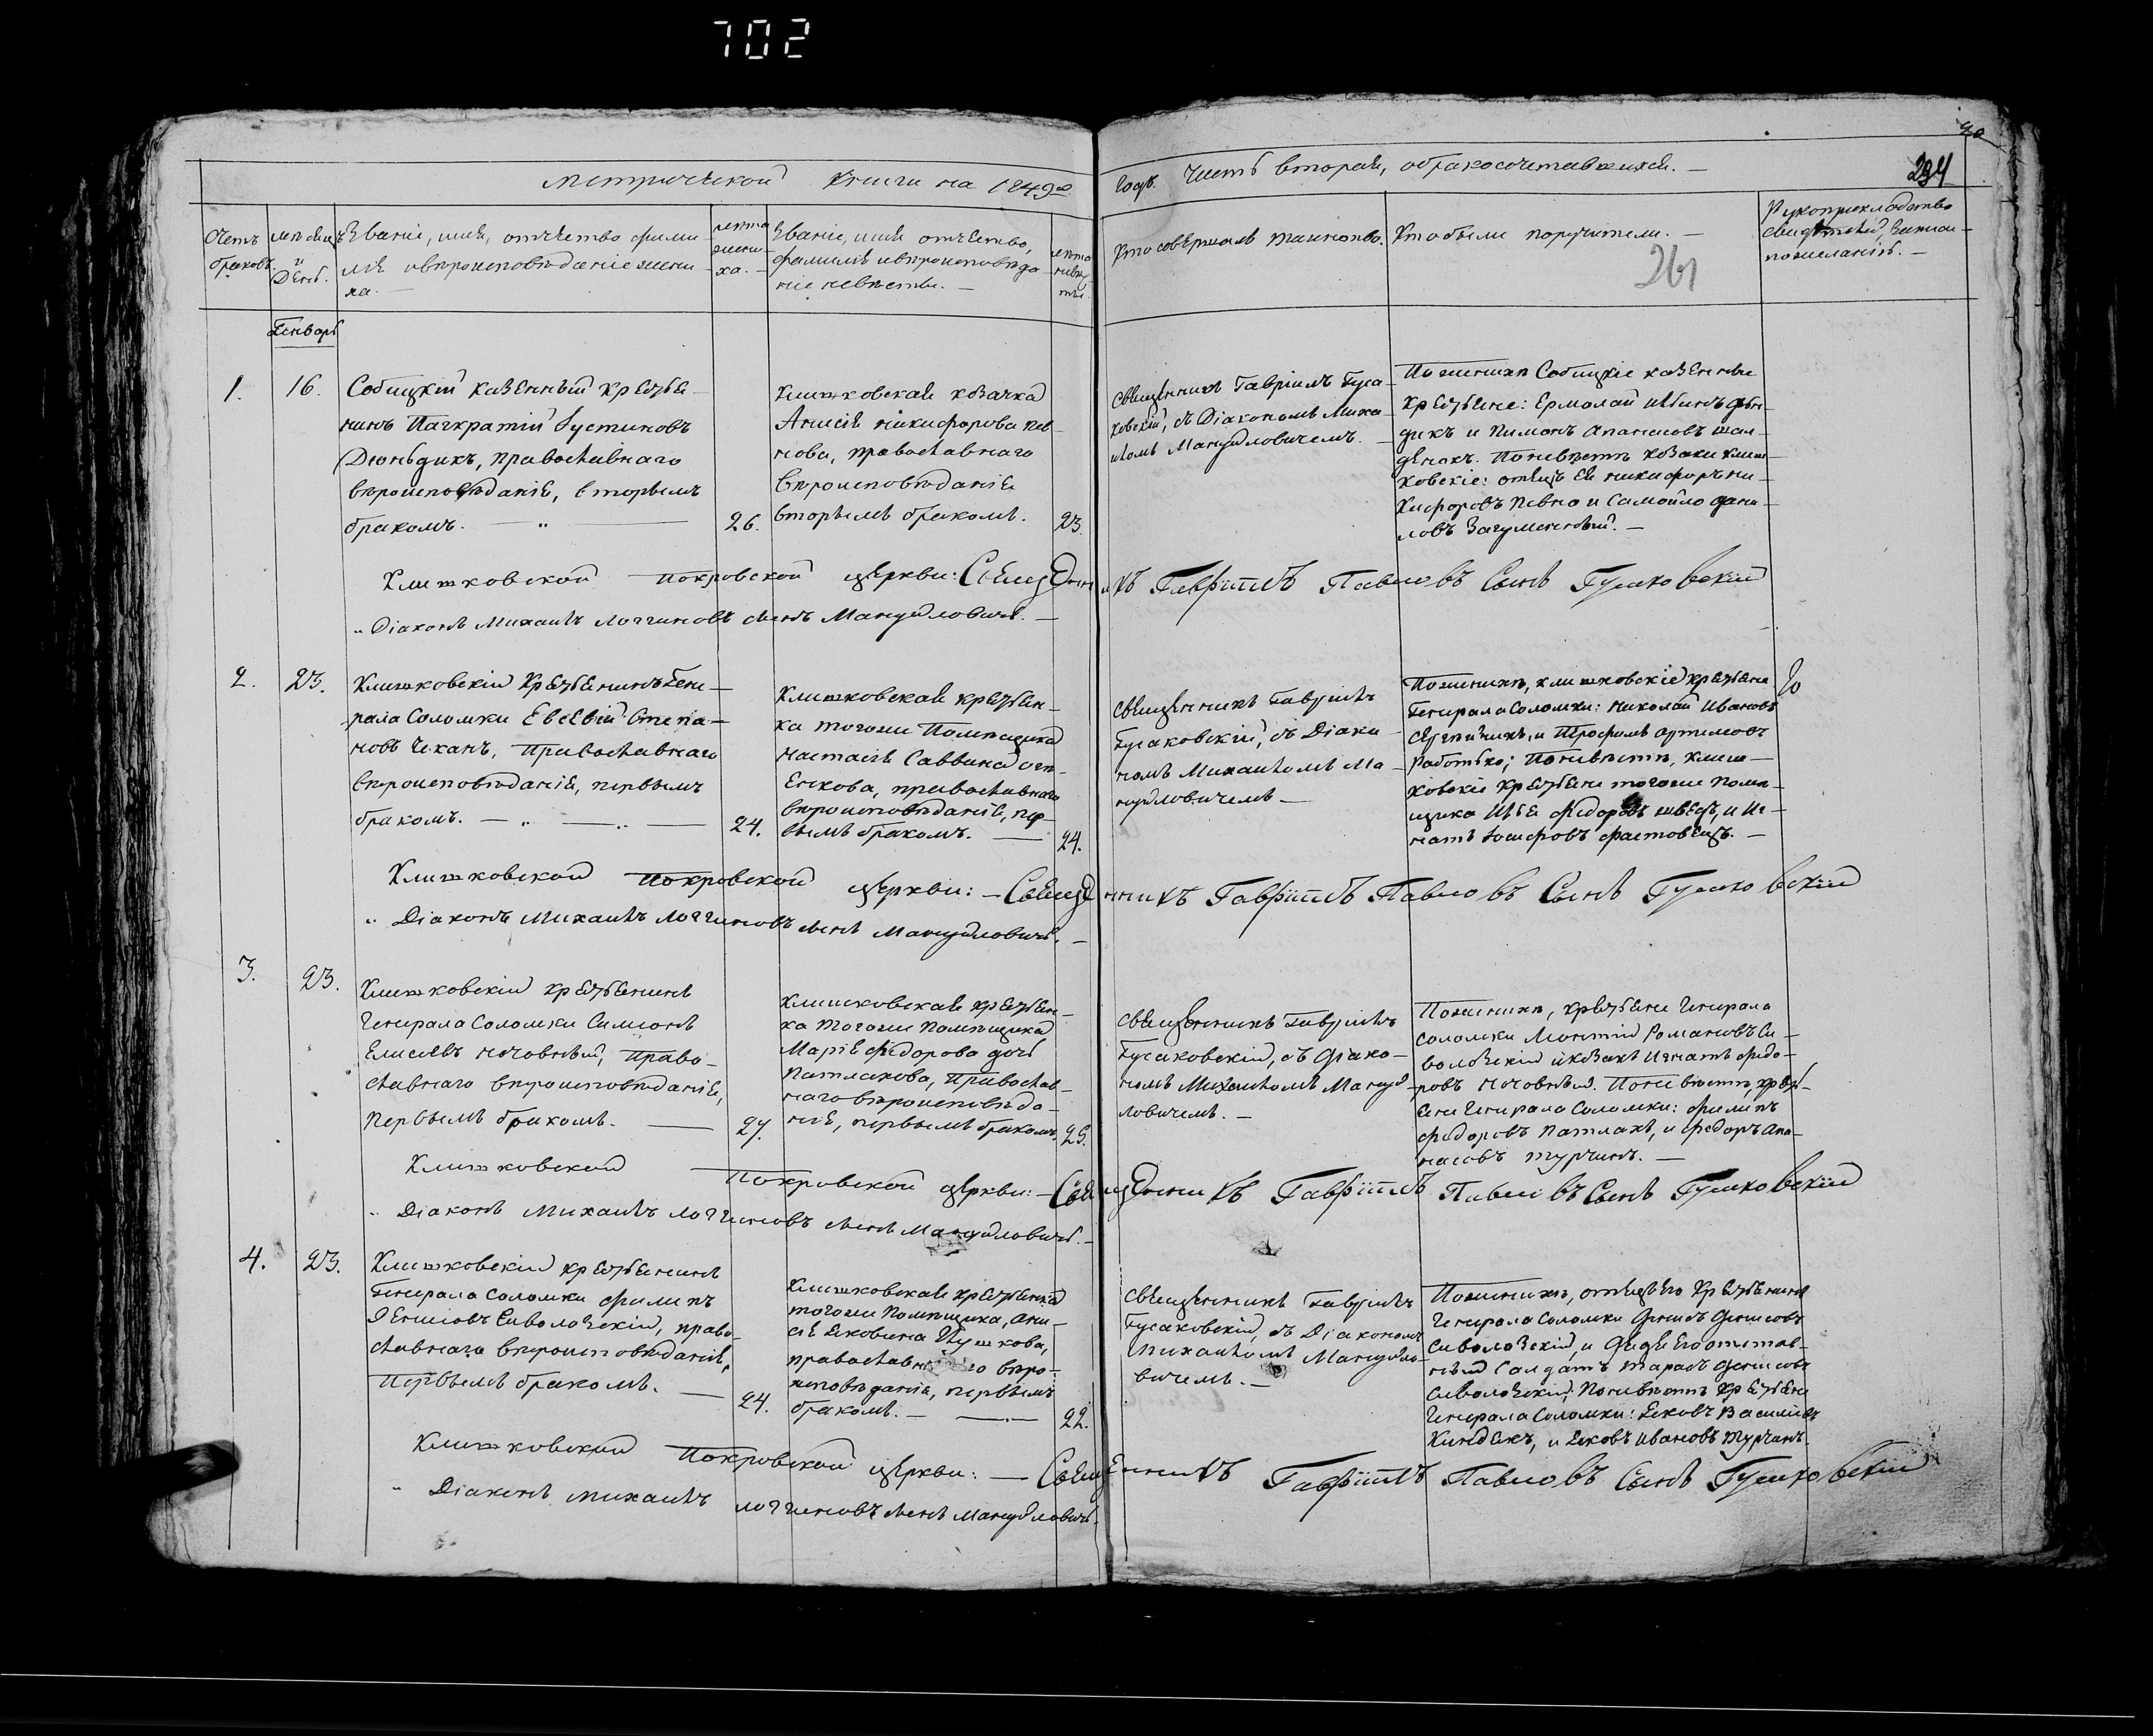 702
Метрической Книги на 1849й
годъ. Часть вторая, о бракосочетавшихся. —
234
261
Счетъ браковъ.
Мѣсяцъ и День.
Званіе, имя, отчество фами-
лія и вѣроисповѣданіе жени-
ха. —
лѣта
жени-
ха. —
Званіе, имя отчество,
фамилія и вѣроисповѣда-
ніе невѣсты. —
лѣта
невѣс-
ты.
Кто совершалъ таинство.
Кто были поручители. —
Рукоприкладство
свидѣтелей, записи
по желанію. —
Генварь
1.
16.
Собицкій казенный крестья-
нинъ Пагкратій Іустиновъ
Дюньдикъ, православнаго
вѣроисповѣданія, вторымъ
бракомъ. — „ —
26.
Клишковская козачка
Анисія Никифорова Пев-
нова, православнаго
вѣроисповѣданія
вторымъ бракомъ.
23.
Священникъ Гавріилъ Гуса-
ковскій, съ Діакономъ Миха-
иломъ Мануйловичемъ. —
По женихѣ Собицкіе казенные
крестьяне: Ермолай
и Пимонъ Апанасовъ
По невѣстѣ козаки Клиш-
ковскіе: отецъ ея Никифоръ Ни-
кифоровъ Певно и Самойло Дани-
ловъ Загуменный. —
Клишковской Покровской церкви: Священникъ Гавріилъ Павловъ Сынъ Гусаковскій
„ Діаконъ Михаилъ Логгиновъ сынъ Мануйловичъ. —
2.
23.
Клишковскій Крестьянинъ Гене-
рала Соломки Евсевій Степа-
новъ Чеканъ, Православнаго
вѣроисповѣданія, первымъ
бракомъ. — „ — „ —
24.
Клишковская крестьян-
ка тогоже Помѣщика
Настасія Саввина
православнаго
вѣроисповѣданія, пер-
вымъ бракомъ. —
24.
Священникъ Гавріилъ
Гусаковскій, съ Діако-
номъ Михаиломъ Ма-
нуйловичемъ —
По женихѣ, клишковскіе крестьяне
Генерала Соломки: Николай Ивановъ
и Трофимъ Артемовъ
Работько; По невѣстѣ, Клиш-
ковскіе крестьяне тогоже Помѣ-
щика Илья Федоровъ Швецъ, и Иг-
натъ Іосифовъ Фастовецъ. —
Клишковской Покровской церкви: — Священникъ Гавріилъ Павловъ Сынъ Гусаковскій
„ Діаконъ Михаилъ Логгиновъ сынъ Мануйловичъ. —
3.
23.
Клишковскій крестьянинъ
Генерала Соломки Симеонъ
Елисѣевъ Нечовный, Право-
славнаго вѣроисповѣданія,
Первымъ бракомъ. —
27.
Клишковская крестьян-
ка тогоже Помѣщика
Марія Федорова дочь
Патлахова, Православ-
наго вѣроисповѣда-
нія, первымъ бракомъ.
25.
Священникъ Гавріилъ
Гусаковскій, съ Діако-
номъ Михаиломъ Мануй-
ловичемъ. —
По женихѣ, крестьяне Генерала
Соломки Романовъ Си-
воловскій и козакъ Игнатъ Федо-
ровъ Нечовный. По невѣстѣ, крест-
яне Генерала Соломки: Филипъ
Федоровъ Патлахъ, и Федоръ Апа-
насовъ Турчинъ. —
Клишковской Покровской церкви: — Священникъ Гавріилъ Павловъ Сынъ Гусаковскій
„ Діаконъ Михаилъ Логгиновъ сынъ Мануйловичъ. —
4.
23.
Клишковскій крестьянинъ
Генерала Соломки Филипъ
Денисовъ Сиволовскій, право-
славнаго вѣроисповѣданія,
Первымъ бракомъ. —
24.
Клишковская крестьянка
тогоже Помѣщика, Ани-
сія Яковина
православнаго вѣро-
исповѣданія, первымъ
бракомъ. —
22.
Священникъ Гавріилъ
Гусаковскій, съ Діакономъ
Михаиломъ Мануйло-
вичемъ. —
По женихѣ, отецъ его крестьянинъ
Генерала Соломки Денисъ Денисовъ
Сиволовскій, и дядя его отстав-
ный Салдатъ Тарасъ Денисовъ
Сиволовскій; По невѣстѣ крестьяне
Генерала Соломки: Яковъ Васильевъ
и Яковъ Ивановъ Турчинъ.
Клишковской Покровской церкви: — Священникъ Гавріилъ Павловъ Сынъ Гусаковскій
„ Діаконъ Михаилъ Логгиновъ сынъ Мануйловичъ.